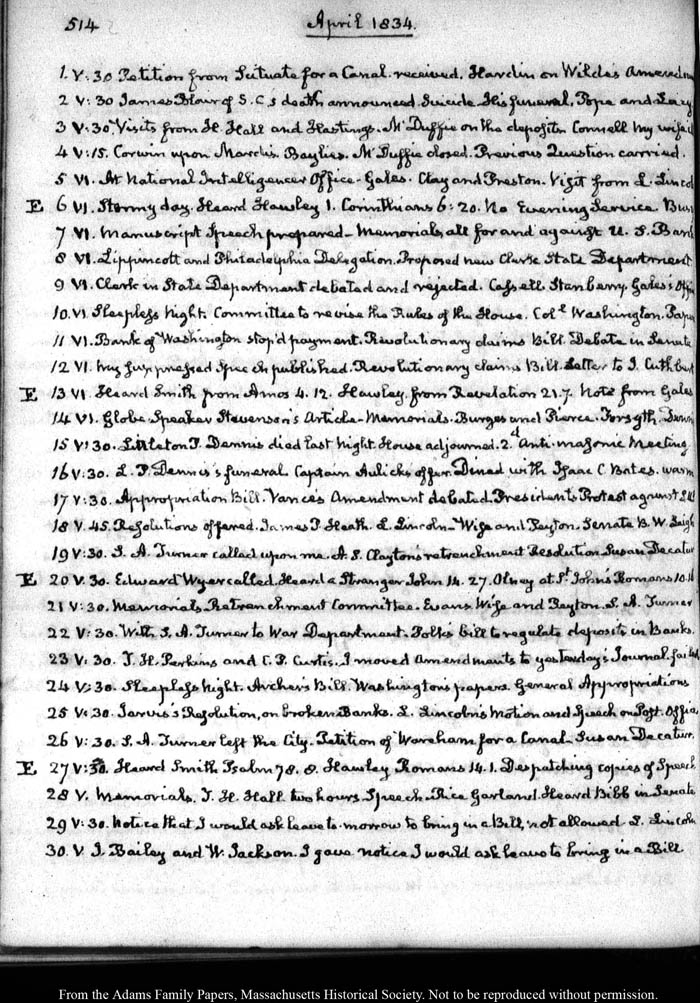 514 April 1834.
1. V: 30 Petition from Scituate for a Canal received. Hardin on Wilde's Amendm
2 V: 30 James Blair of S. C's death announced Suicide His funeral. Pope and
3 V: 30. Visits from H. Hall and Hastings. McDuffie on the deposits Connell my wife
4 V: 15. Corwin upon Mardis. Baylies. McDuffie closed. Previous Question carried.
5 VI. At National Intelligencer Office. Gales. Clay and Preston. Visit from L. Lincol
E 6 VI. Stormy day. Heard Hawley 1. Corinthians 6: 20. No Evening Service
7 VI. Manuscript Speech prepared. Memorials all for and against U. S. Bank
8 VI. Lippincott and Philadelphia Delegation. Proposed new Clerk State Department
9 VI. Clerk in State Department debated and rejected. Cassell Stanberry. Gales's Offi
10. VI. Sleepless Night. Committee to revise the Rules of the House. Colt Washington. Paper
11 VI. Bank of Washington stop'd payment. Revolutionary claims Bill. Debate in Senate
12 VI. My suppressed Speech published. Revolutionary claims Bill. Letter to J. Cuthbert
E 13 VI. Heard Smith from Amos 4. 12. Hawley from Revelation 21. 7. Note from Gales
14 VI. Globe Speaker Stevenson's Article. Memorials. Burges and Pierce. Forsyth.
15 V: 30. Littleton P. Dennis died last Night. House adjourned. 2d Anti-masonic Meeting
16 V: 30. L. P. Dennis's funeral Captain Aulicks offer. Dined with Isaac C. Bates. warm
17 V: 30. Appropriation Bill. Vance's Amendment debated. President's Protest against
18 V. 45. Resolutions offered. James P. Heath. L. Lincoln. Wise and Peyton. Senate B. W. Leigh
19 V: 30. S. A. Turner called upon me. A. S. Clayton's retrenchment Resolution Susan Decatur
E 20 V. 30. Edward Wyer called. Heard a Stranger John 14. 27. Olney at St John's Romans 10.
21 V: 30. Memorials. Retrenchment Committee. Evans Wise and Peyton. S. A. Turner
22 V: 30. With S. A. Turner to War Department. Polk's bill to regulate deposits in Banks.
23 V: 30. T. H. Perkins and C. P. Curtis. I moved Amendments to yesterday's Journal. failed
24 V: 30. Sleepless Night. Archer's Bill. Washington's papers. General Appropriations
25 V: 30. Jarvis's Resolution, on broken Banks. L. Lincoln's Motion and Speech on Post. Office
26 V: 30. S. A. Turner left the City. Petition of Wareham for a Canal. Susan Decatur.
E 27 V: 30. Heard Smith Psalm 78. 8. Hawley Romans 14. 1. Despatching copies of Speech
28 V. Memorials. T. H. Hall two hours Speech. Rice Garland. Heard Bibb in Senate
29 V: 30. Notice that I would ask leave to-morrow to bring in a Bill, not allowed L. Lincoln
30. V J. Bailey and W. Jackson. I gave notice I would ask leave to bring in a Bill
From the Adams Family Papers, Massachusetts Historical Society. Not to be reproduced without permission.